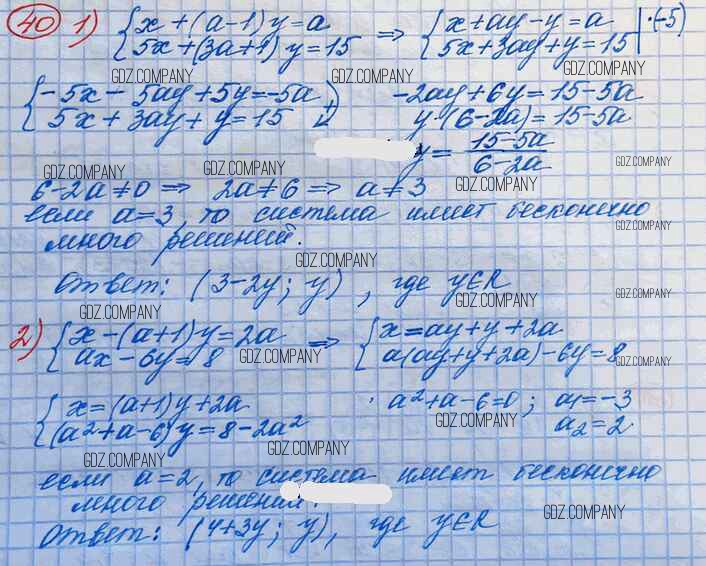 40 1) { x + (a-1) y = a => { x + ay - y = a | ·(-5)
5x + (3a+1) y = 15 5x + 3ay + y = 15
GDZ.COMPANY GDZ.COMPANY GDZ.COMPANY
{ -5x - 5ay + 5y = -5a + -2ay + 6y = 15 - 5a
5x + 3ay + y = 15 y (6-2a) = 15 - 5a
y = 15-5a / 6-2a
GDZ.COMPANY GDZ.COMPANY GDZ.COMPANY
6-2a ≠ 0 => 2a ≠ 6 => a ≠ 3 GDZ.COMPANY
если a = 3, то система имеет бесконечно
много решений. GDZ.COMPANY
GDZ.COMPANY
Ответ: (3-2y; y), где y∈R
GDZ.COMPANY GDZ.COMPANY GDZ.COMPANY
2) { x - (a+1) y = 2a => { x = ay + y + 2a
ax - 6y = 8 GDZ.COMPANY a(ay+y+2a) - 6y = 8 GDZ.COMPANY
{ x = (a+1) y + 2a a² + a - 6 = 0; a₁ = -3
(a²+a-6) y = 8 - 2a² GDZ.COMPANY a₂ = 2
GDZ.COMPANY GDZ.COMPANY
если a = 2, то система имеет бесконечно
много решений. GDZ.COMPANY
Ответ: (4+3y; y), где y∈R